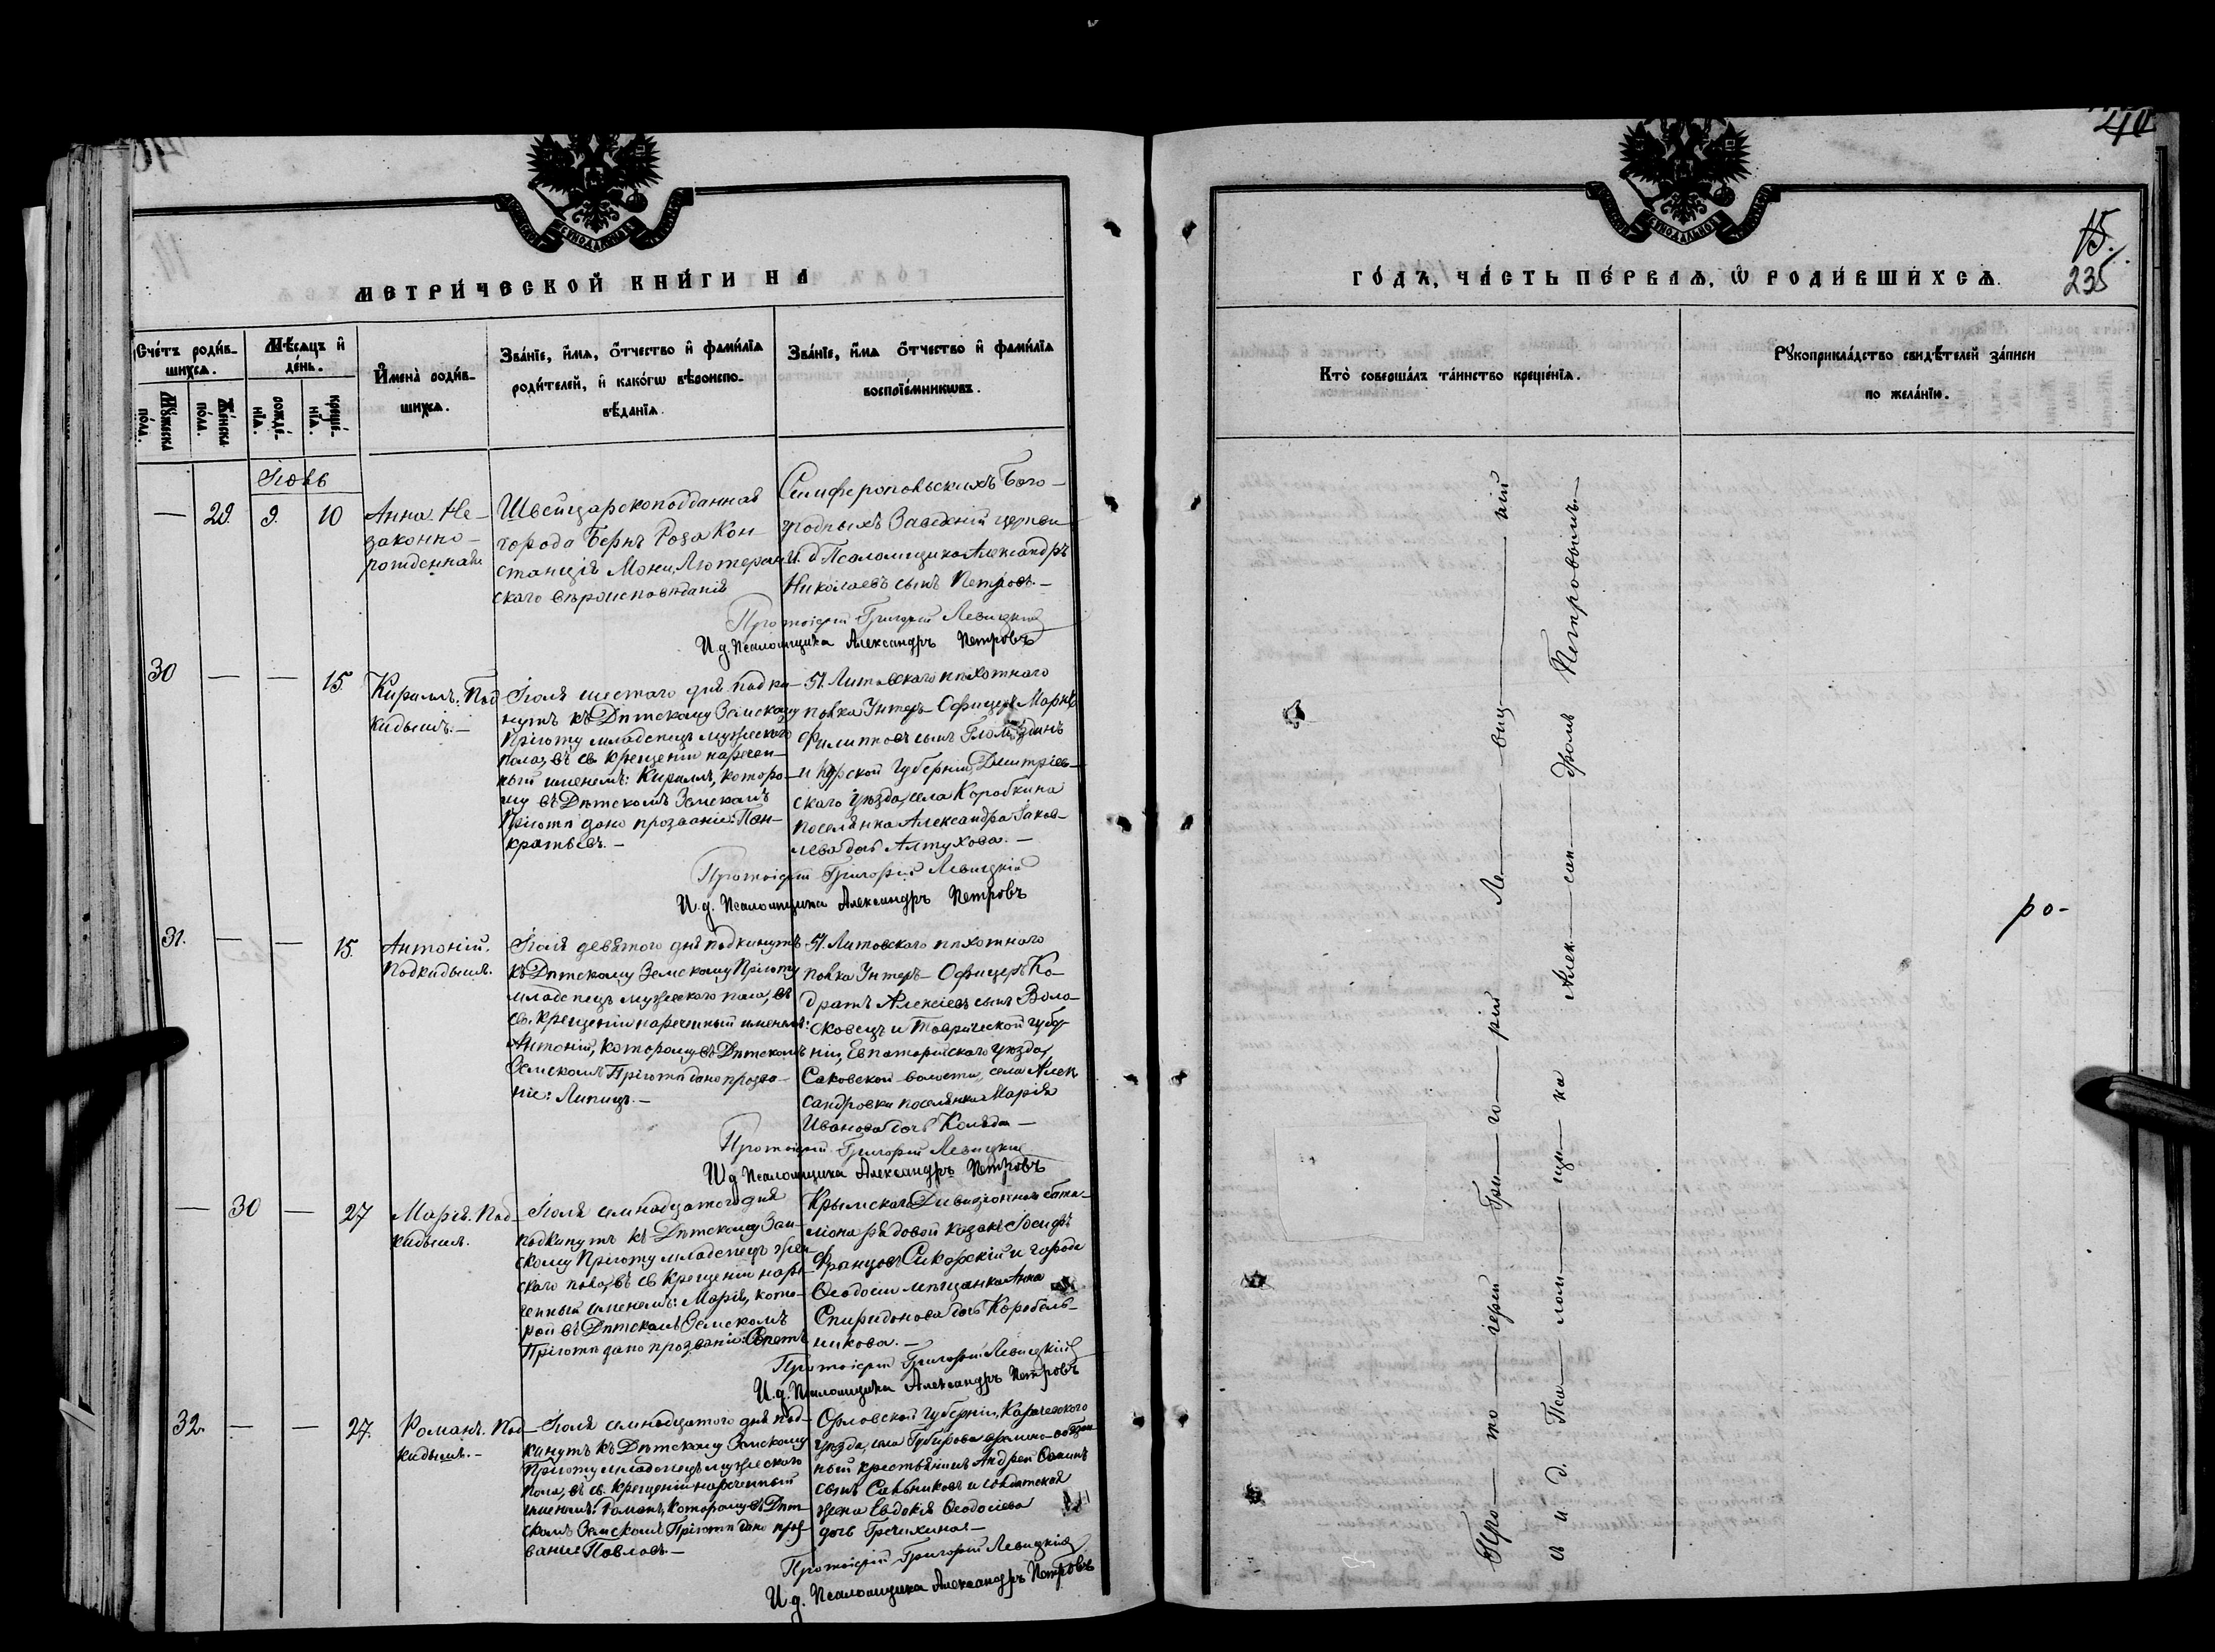 МЕТРИ́ЧЕСКОЙ КНИ́ГИ НА
Сче́тъ роди́в-
шихсѧ.
Мѣ́сѧцъ и҆
де́нь.
И҆мена̀ роди́в-
шихсѧ.
Зва́нїе, и҆́мѧ, ѻ҆́тчество и҆ фами́лїѧ
роди́телей, и҆ како́гѡ вѣроиспо-
вѣ́данїѧ.
Зва́нїе, и҆́мѧ ѻ҆́тчество и҆ фами́лїѧ
воспрїе́мникѡвъ.
Мꙋ́жеска
по́ла.
Же́нска
по́ла.
рожде́-
нїѧ.
креще́-
нїѧ.
Іюль
— 29. 9. 10
Анна. Не-
законно-
рожденная
Швейцарскоподданная
города Бернъ Роза Кон-
станція Мони, Лютеран-
скаго вѣроисповѣданія
Симферопольскихъ Бого-
угодныхъ Заведеній церкви
И. д. Псаломщика Александръ
Николаевъ сынъ Петровъ.—
Протоіерей Григорій Левицкій
И.д. Псаломщика Александръ Петровъ
30 — — 15.
Кириллъ. Под
кидышъ.—
Іюля шестаго дня подки-
нутъ къ Дѣтскому Земскому
Пріюту младенецъ мужескаго
пола, въ св. крещеніи наречен-
ный именемъ: Кириллъ, которо-
му въ Дѣтскомъ Земскомъ
Пріютѣ дано прозваніе: Пан-
кратьевъ.—
51. Литовскаго пѣхотнаго
полка Унтеръ-Офицеръ Марко
Филипповъ сынъ
и Курской Губерніи, Дмитріев-
скаго уѣзда, села Коробкина
поселянка Александра Яков-
лева дочь Алтухова.—
Протоіерей Григорій Левицкій
И.д. Псаломщика Александръ Петровъ
31. — — 15.
Антоній.
Подкидышъ.
Іюля девятого дня подкинутъ
къ Дѣтскому Земскому Пріюту
младенецъ мужескаго пола, въ
св. крещеніи нареченный именемъ:
Антоній, которому въ Дѣтскомъ
Земскомъ Пріютѣ дано прозва-
ніе: Липицъ.—
51. Литовскаго пѣхотнаго
полка Унтеръ-Офицеръ Ко-
дратъ Алексіевъ сынъ Воло-
сковецъ и Таврической губер-
ніи, Евпаторійскаго уѣзда,
Сакской волости, села Алек-
сандровки поселянка Марія
Иванова дочь Коляда—
Протоіерей Григорій Левицкій
И.д. Псаломщика Александръ Петровъ
— 30 — 27
Марія. Под-
кидышъ.
Іюля семнадцатого дня
подкинутъ къ Дѣтскому Зем-
скому Пріюту младенецъ жен-
скаго пола, въ св. крещеніи наре-
ченный именемъ: Марія, кото-
рой въ Дѣтскомъ Земскомъ
Пріютѣ дано прозваніе:
Крымскаго Дивизіоннаго бата-
ліона рядовой казакъ Іосифъ
Францовъ Сикорскій и города
Ѳеодосіи мѣщанка Анна
Спиридонова дочь Коробель-
никова.—
Протоіерей Григорій Левицкій
И.д. Псаломщика Александръ Петровъ
32. — — 27.
Романъ. Под-
кидышъ.—
Іюля семнадцатого дня под-
кинутъ къ Дѣтскому Земскому
Пріюту младенецъ мужескаго
пола, въ св. крещеніи нареченный
именемъ: Романъ, которому въ Дѣт-
скомъ Земскомъ Пріютѣ дано проз-
ваніе: Павловъ.—
Орловской Губерніи, Карачевскаго
уѣзда, села
крестьянинъ Андрей
сынъ Сальниковъ и солдатская
жена Евдокія Ѳеодосіева
дочь Гречихина—
Протоіерей Григорій Левицкій
И.д. Псаломщика Александръ Петровъ
15.
235
ГО́ДЪ, ЧА́СТЬ ПЕ́РВАѦ, Ѡ҆ РОДИ́ВШИХСѦ.
Кто̀ соверша́лъ та́инство креще́нїѧ.
Рꙋкоприкла́дство свидѣ́телей за́писи
по жела́нїю.
Про—то—іерей Гри—го—рій Ле—виц—кій
и И. д. Пса—лом—щи—ка Алек—сан—дромъ Петровымъ—
ро-